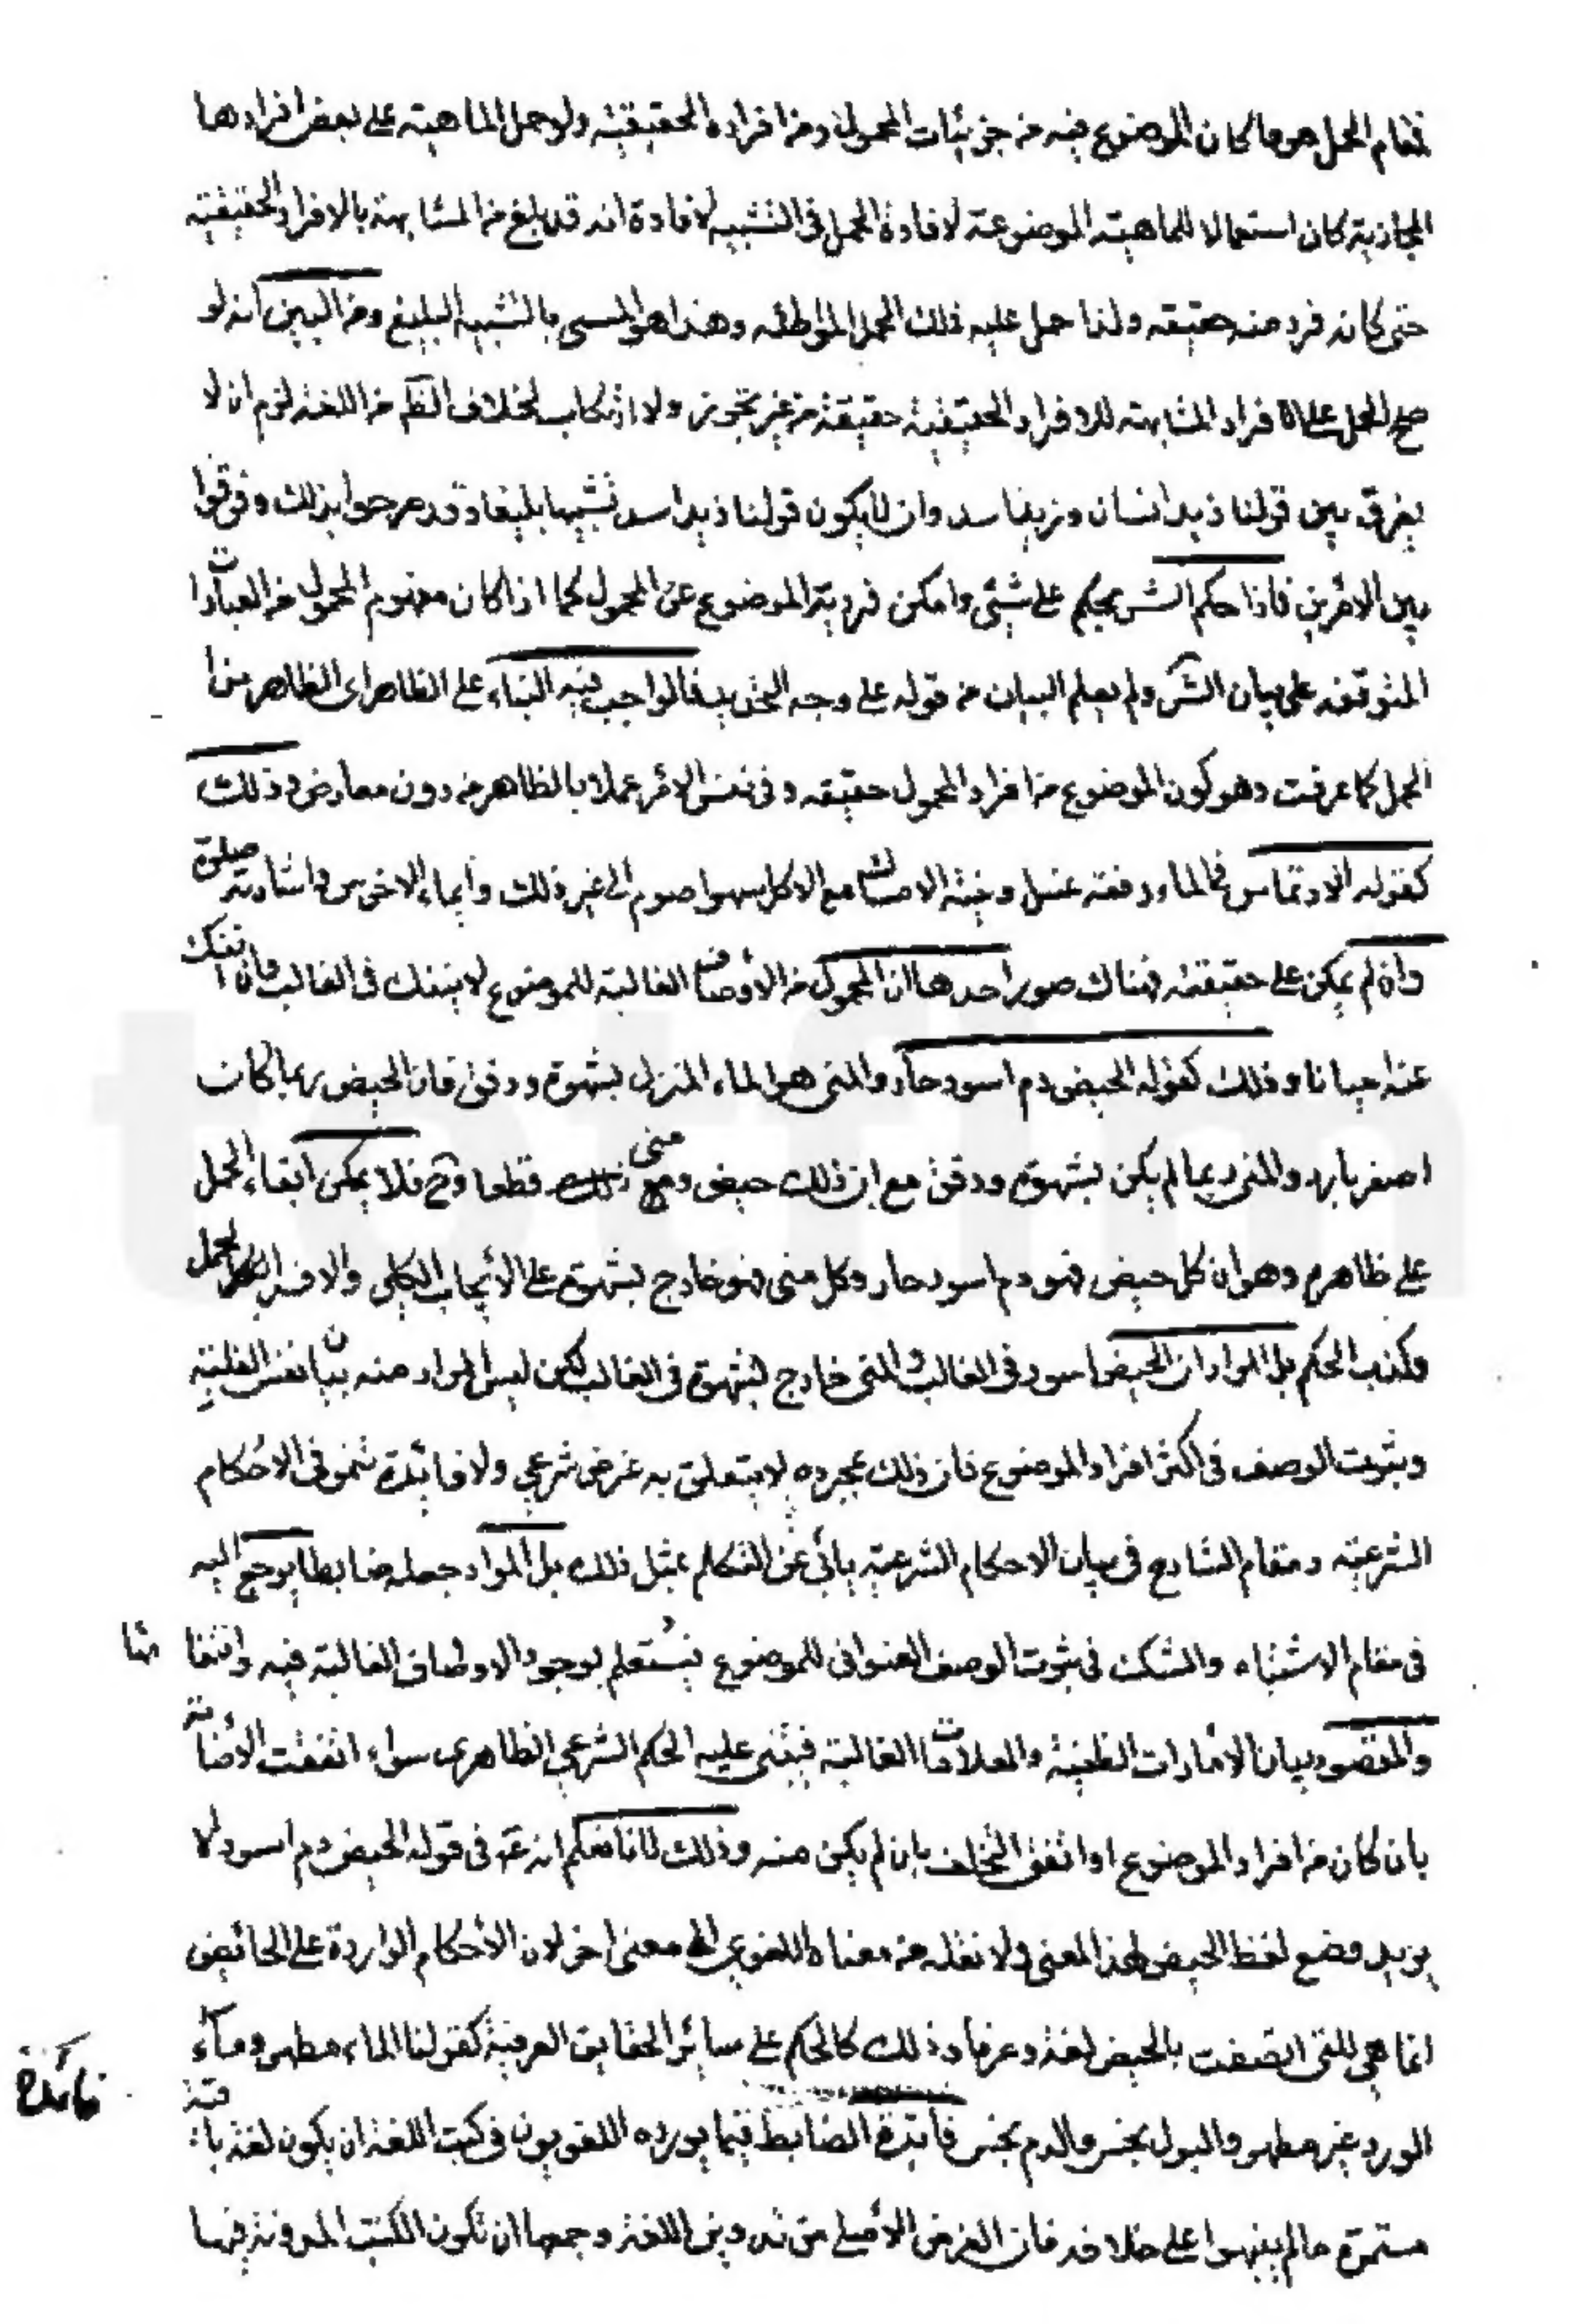 فمقام الحمل هو ما كان الموضوع فيه من جزئيات المحمول ومن افراده الحقيقية ولو حمل الماهية على بعض افرادها
المجازية كان استعمالا للماهية الموضوعة لافادة الحمل فى التشبيه لافادة انه قد بلغ من المشابهة بالافراد الحقيقية
حتى كانه فرد منه حقيقه ولذا حمل عليه ذلك الحمل المواطئه وهذا هو المسمى بالتشبيه البليغ ومن البين انه لو
صح الحمل على الافراد المشابهة للافراد الحقيقية حقيقة من غير تجوز ولا ارتكاب لخلاف الظم من اللغة لزم ان لا
يفرق بين قولنا زيد انسان وزيد اسد وان لا يكون قولنا زيد اسد تشبيها بليغا وقد صرحوا بذلك وفرقوا
بين الامرين فاذا حكم الش بحكم على شيئ وامكن فردية الموضوع عن المحمول كما اذا كان مفهوم المحمول من العبادات
المتوقفه على بيان الش ولم يعلم البيان من قوله على وجه التحديد فالواجب فيه البناء على الظاهر اى الظاهر من
الحمل كما عرفت وهو كون الموضوع من افراد المحمول حقيقه وفى نفس الامر عملا بالظاهر من دون معارض وذلك
كقوله الارتماس فى الماء دفعة غسل ونية الامساك مع الاكل سهوا صوم الى غير ذلك وايماء الاخرس واشارته صلوة
وان لم يمكن على حقيقته فهناك صور احدها ان المحمول من الاوصاف الغالبة للموضوع لا ينفك فى الغالب وان انفك
عنه احيانا وذلك كقوله الحيض دم اسود حار والمنى هو الماء المنزل بشهوة ودفق فان الحيض ربما كان
اصفر بارد والمنى ربما لم يكن بشهوة ودفق مع ان ذلك حيض ومنى قطعا وح فلا يمكن ابقاء الحمل
على ظاهره وهو ان كل حيض فهو دم اسود حار وكل منى فهو خارج بشهوة على الايجاب الكلى والا فسد الحمل
وكذب الحكم بل المراد ان الحيض اسود فى الغالب والمنى خارج بشهوة فى الغالب لكن ليس المراد منه بيان نفس الغلبة
وثبوت الوصف فى اكثر افراد الموضوع فان ذلك بمجرده لا يتعلق به غرض شرعي ولا فائدة تنمو فى الاحكام
الشرعيه ومقام الشارع فى بيان الاحكام الشرعية يابى عن التكلم بمثل ذلك بل المراد جعله ضابطا يرجع اليه
فى مقام الاشتباه والشك فى ثبوت الوصف العنوانى للموضوع فيستعلم بوجود الاوصاف الغالبة فيه وانتفائها
والمقصود بيان الامارات الظنية والعلامات الغالبة فيبتنى عليه الحكم الشرعي الظاهرى سواء اتفقت الاضافة
بان كان من افراد الموضوع او اتفق التخلف بان لم يكن منه وذلك لانا نعلم انه ع فى قوله الحيض دم اسود لا
يريد وضع لفظ الحيض لهذا المعنى ولا نقله من معناه اللغوي الى معنى اخر لان الاحكام الواردة على الحائض
انما هي للتى اتصفت بالحيض لغة وعرفا وذلك كالحكم على سائر الحقايق العرفية كقولنا الماء مطهر وماء
الورد غير مطهر والبول نجس والدم نجس فائدة الضابط فيما يورده اللغويون فى كتب اللغة ان يكون لغة باقية
فائدة
مستمرة ما لم ينبهوا على خلافه فان الغرض الاصلي من تدوين اللغة وجمعها ان تكون الكتب المدونة فيها